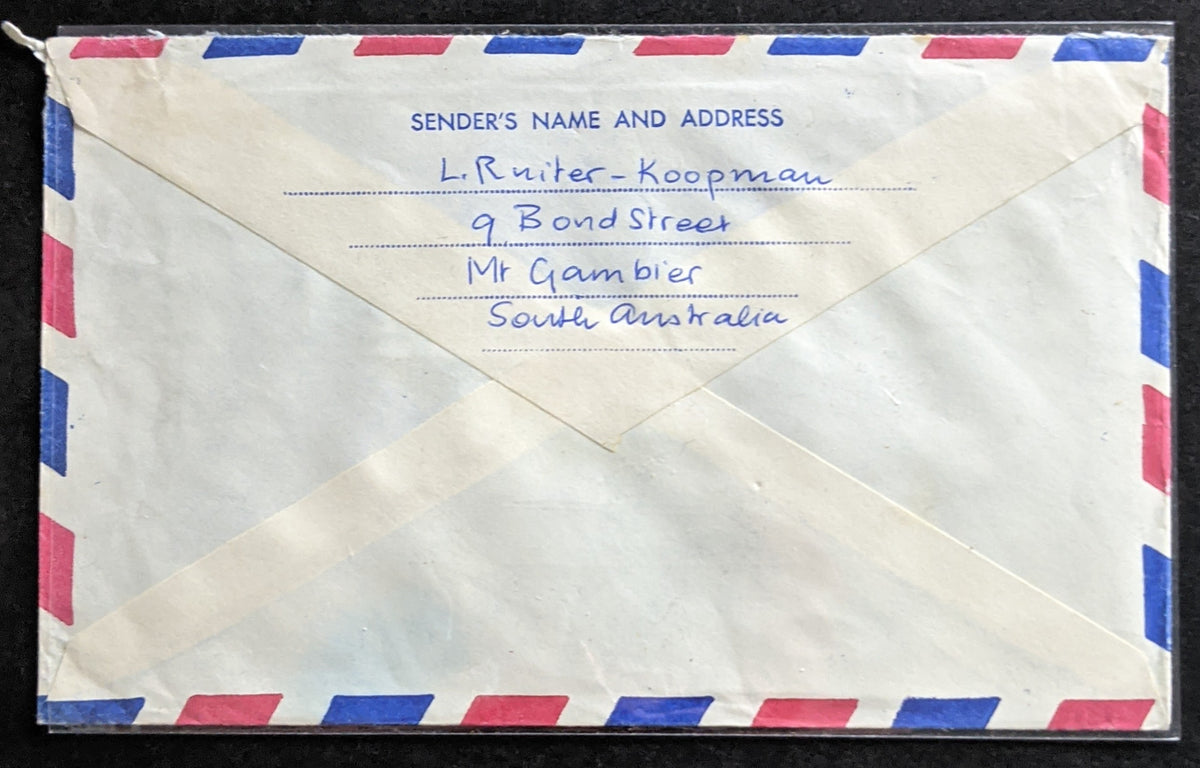 SENDER'S NAME AND ADDRESS
L. Ruiter - Koopman
9 Bond Street
Mt Gambier
South Australia